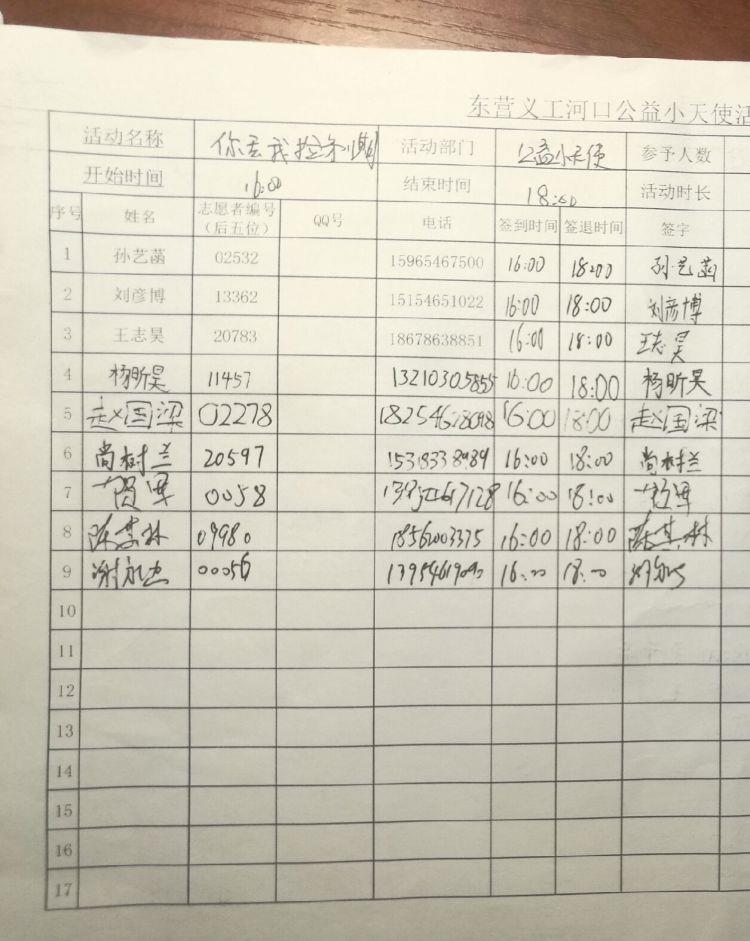 东营义工河口公益小天使活
活动名称 你丢我捡 活动部门 公益小天使 参予人数
开始时间 16:00 结束时间 18:00 活动时长
序号 姓名 志愿者编号 QQ号 电话 签到时间 签退时间 签字
（后五位）
1 孙艺菡 02532 15965467500 16:00 18:00 孙艺菡
2 刘彦博 13362 15154651022 16:00 18:00 刘彦博
3 王志昊 20783 18678638851 16:00 18:00 王志昊
4 杨昕昊 11457 13210305855 16:00 18:00 杨昕昊
5 赵国梁 02278 16:00 18:00 赵国梁
6 尚树兰 20597 16:00 18:00 尚树兰
7 0058 16:00 18:00
8 陈其林 09980 16:00 18:00 陈其林
9 00056 16:00 18:00
10
11
12
13
14
15
16
17